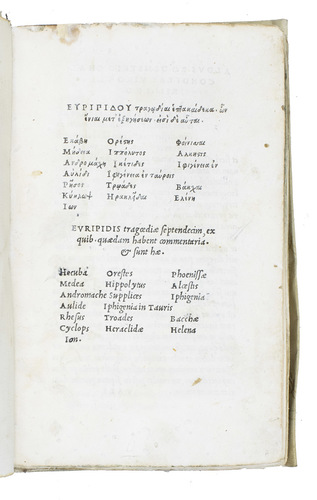 ΕΥΡΙΠΙΔΟΥ τραγῳδίαι ἑπτακαίδεκα. ὧν
ἔνιαι μετ' ἐξηγήσεων. εἰσὶ δὲ αὗται.
Εκάβη Ορέστης Φοίνισσαι
Μήδεια Ιππόλυτος Αλκηστις
Ανδρομάχη Ικέτιδες Ιφιγένεια ἐν
Αὐλίδι Ιφιγένεια ἐν ταύροις
Ρῆσος Τρωάδες Βάκχαι
Κύκλωψ Ηρακλεῖδαι Ελένη
Ιων
EVRIPIDIS tragœdiæ septendecim, ex
quib. quædam habent commentaria.
& sunt hæ.
Hecuba Orestes Phœnissæ
Medea Hippolytus Alcestis
Andromache Supplices Iphigenia
Aulide Iphigenia in Tauris
Rhesus Troades Bacchæ
Cyclops Heraclidæ Helena
Ion.